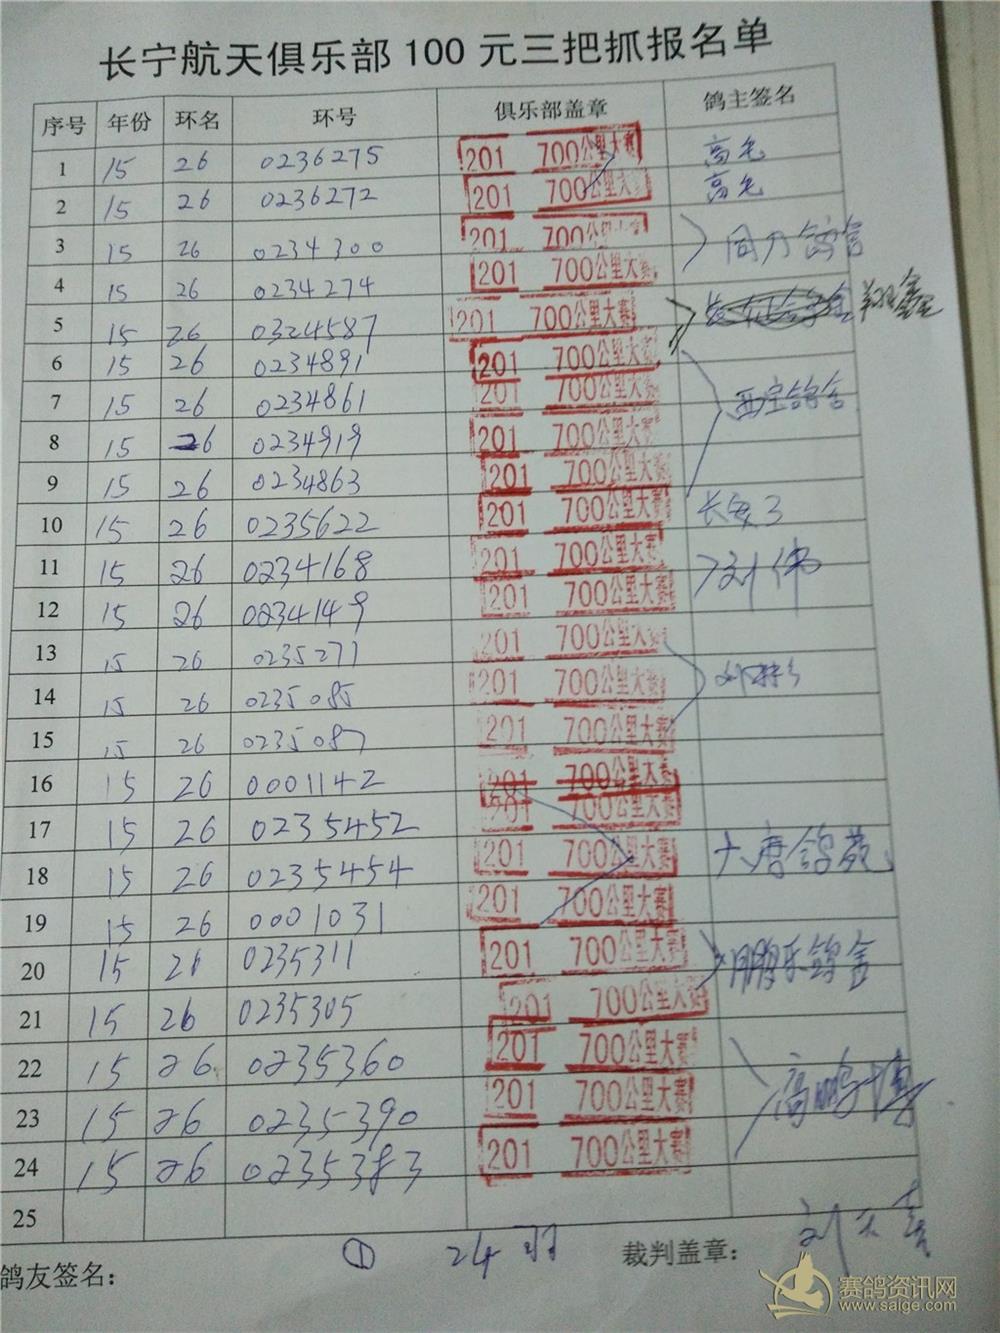 长宁航天俱乐部 100 元三把抓报名单
序号 年份 环名 环号 俱乐部盖章 鸽主签名
1 15 26 0236275 201 700公里大赛 高毛
2 15 26 0236272 201 700公里大赛 高毛
3 15 26 0234300 201 700公里大赛
4 15 26 0234274 201 700公里大赛
5 15 26 0324587 201 700公里大赛 翔鑫
6 15 26 0234891 201 700公里大赛
7 15 26 0234861 201 700公里大赛 鸽舍
8 15 26 0234919 201 700公里大赛
9 15 26 0234863 201 700公里大赛
10 15 26 0235622 201 700公里大赛
11 15 26 0234168 201 700公里大赛 刘伟
12 15 26 0234149 201 700公里大赛
13 15 26 0235271 201 700公里大赛
14 15 26 0235085 201 700公里大赛
15 15 26 0235087 201 700公里大赛
16 15 26 0001142 201 700公里大赛
17 15 26 0235452 201 700公里大赛
18 15 26 0235454 201 700公里大赛 大唐鸽苑
19 15 26 0001031 201 700公里大赛
20 15 26 0235311 201 700公里大赛 鹏乐鸽舍
21 15 26 0235305 201 700公里大赛
22 15 26 0235360 201 700公里大赛
23 15 26 0235390 201 700公里大赛 高鹏
24 15 26 0235383 201 700公里大赛
25
鸽友签名： ① 24羽 裁判盖章： 刘天
赛鸽资讯网
www.saige.com